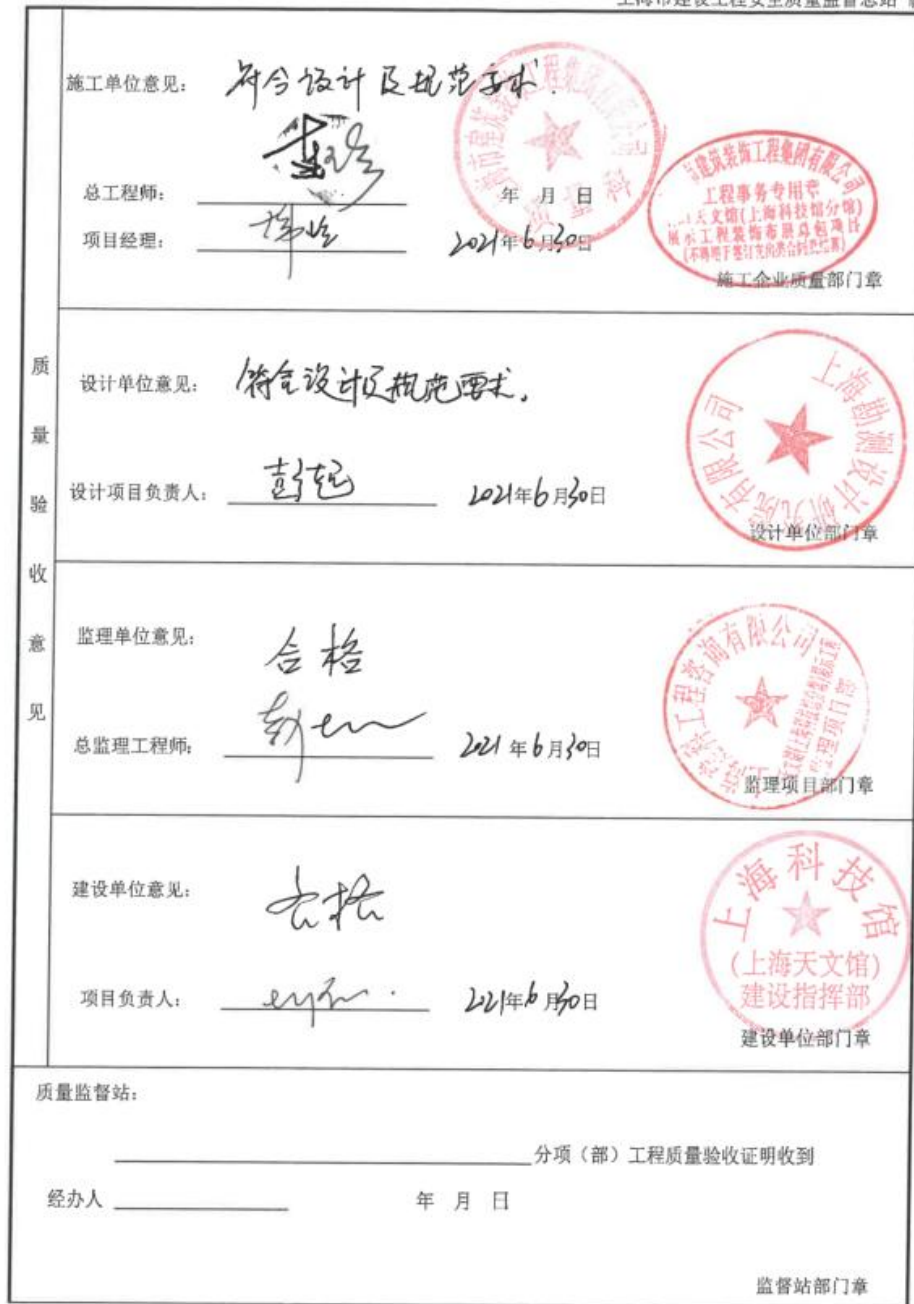 上海市建设工程安全质量监督总站
施工单位意见: 符合设计及规范要求.
总工程师: 年 月 日
项目经理: 2021年6月30日
建筑装饰工程集团有限公司
工程事务专用章
天文馆(上海科技馆分馆)
展示工程装饰布展总包项目
施工企业质量部门章
质量验收意见
设计单位意见: 符合设计及规范要求。
设计项目负责人: 2021年6月30日
上海勘测设计研究院有限公司
设计单位部门章
监理单位意见: 合格
总监理工程师: 2021年6月30日
工程咨询有限公司
监理项目部
监理项目部门章
建设单位意见: 合格
项目负责人: 2021年6月30日
上海科技馆
(上海天文馆)
建设指挥部
建设单位部门章
质量监督站:
分项(部)工程质量验收证明收到
经办人 年 月 日
监督站部门章